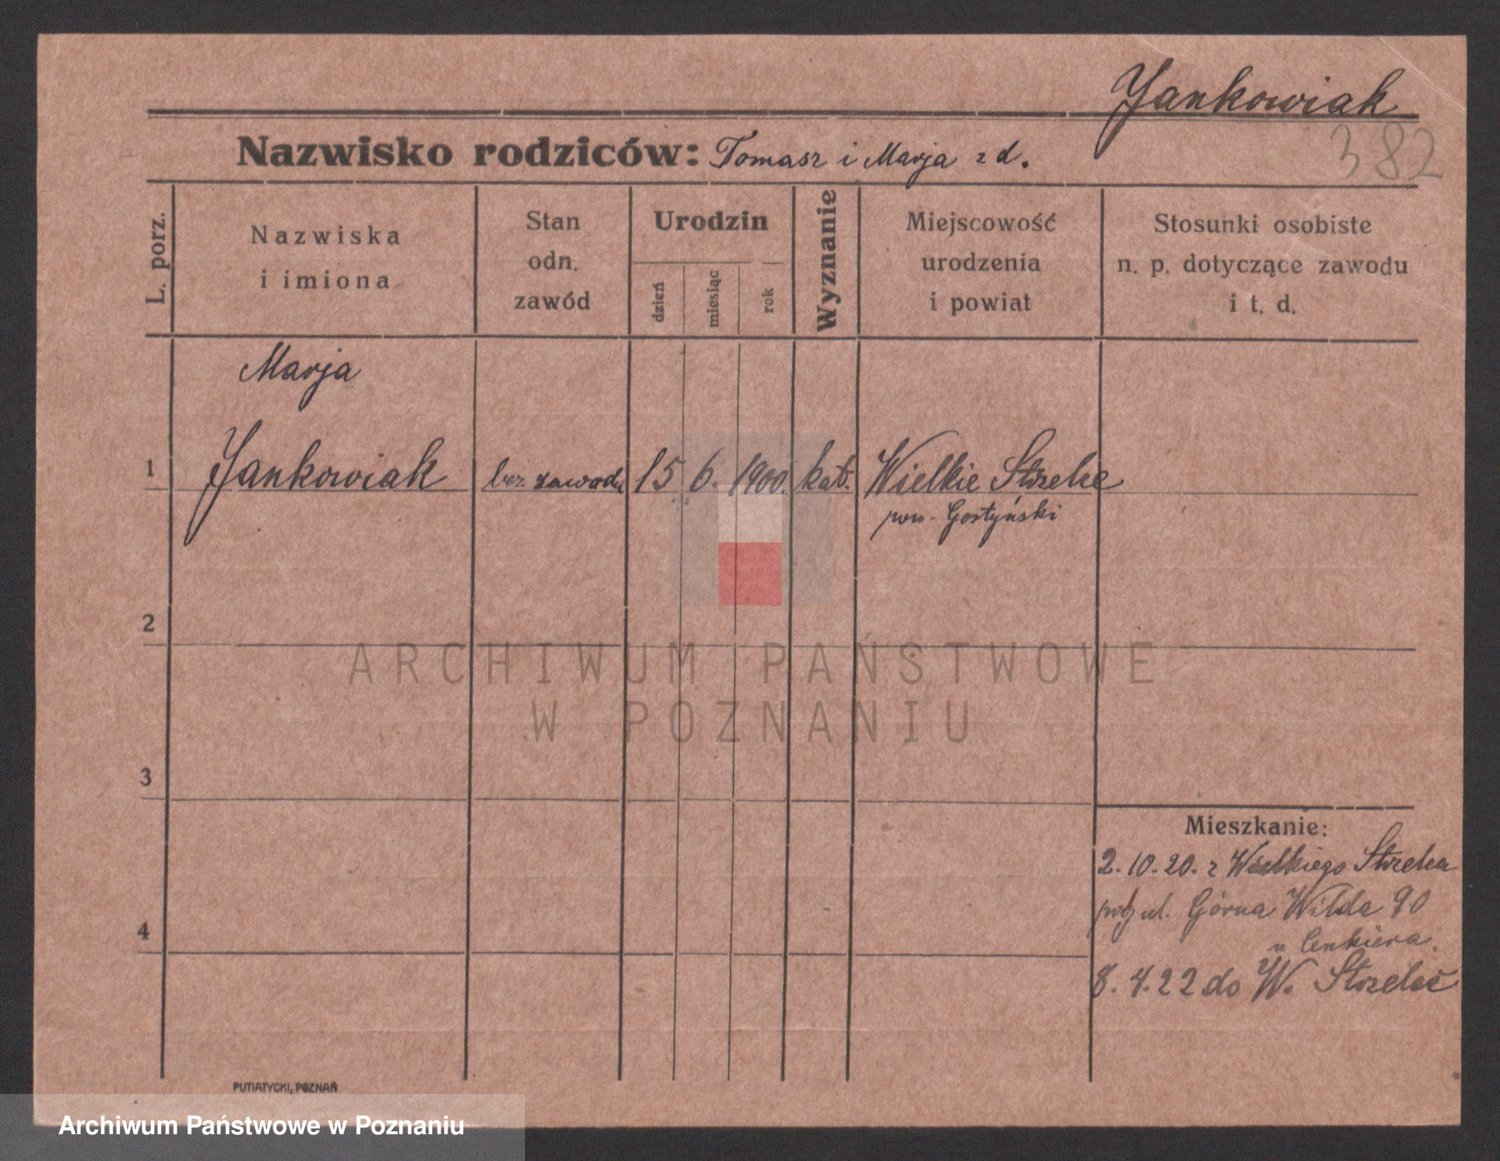 Jankowiak
382
Nazwisko rodziców: Tomasz i Marja z d.
L. porz.
Nazwiska
i imiona
Stan
odn.
zawód
Urodzin
dzień
miesiąc
rok
Wyznanie
Miejscowość
urodzenia
i powiat
Stosunki osobiste
n. p. dotyczące zawodu
i t. d.
Marja
1 Jankowiak bez zawodu 15 6. 1900. kat. Wielkie Strzelce
pow. Gostyński
2
3
4
ARCHIWUM PAŃSTWOWE
W POZNANIU
Mieszkanie:
2.10.20. z Wielkiego Strzelca
ul. Górna Wilda 90
u Cenkiera.
8.4.22 do W. Strzelec
PUTIATYCKI, POZNAŃ
Archiwum Państwowe w Poznaniu